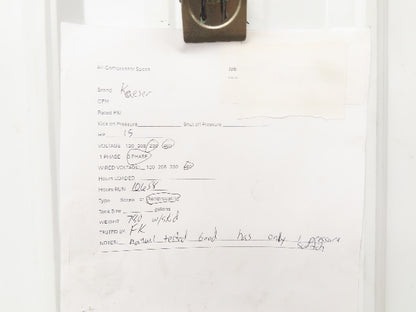 Air Compressor Specs
Job
Brand Kaeser
CFM
Rated PSI
Kick on Pressure Shut off Pressure
HP 15
VOLTAGE 120 208 230 460
1 PHASE 3 PHASE
WIRED VOLTAGE 120 208 230 460
Hours LOADED
Hours RUN 10658
Type Screw or Reciprocating
Tank Size gallons
WEIGHT 740 w/skid
TESTED BY FK
NOTES: manual tested Good has only 1 pressure
switch